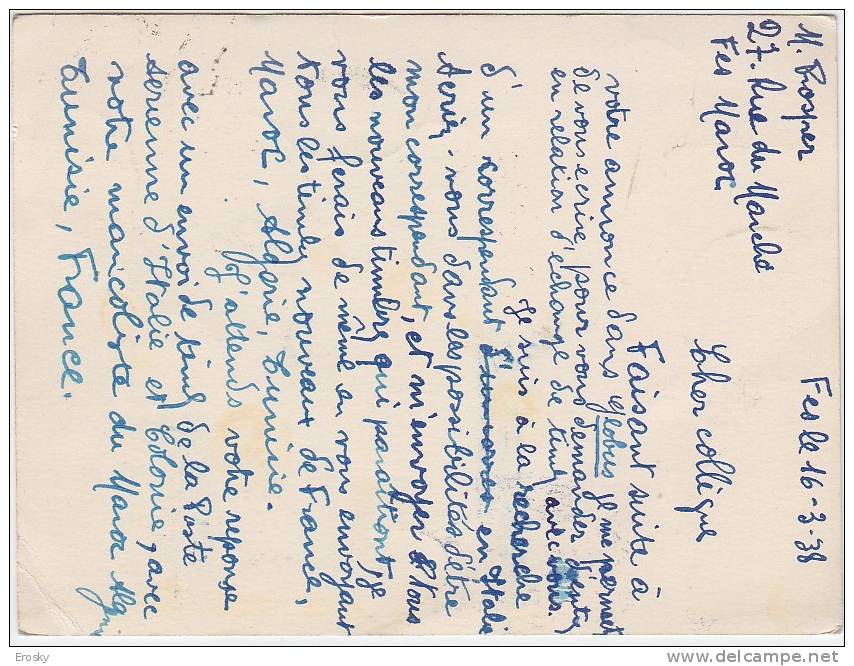 M. Prosper
27. Rue du Marché
Fes Maroc
Fes le 16-3-38
Cher collègue
Faisant suite à
votre annonce dans Globus je me permet
de vous ecrire pour vous demander d'entrer
en relation d'échange de timb avec vous.
Je suis à la recherche
d'un correspondant en Italie
Seriez-vous dans les possibilités d'être
mon correspondant, et m'envoyer tous
les nouveaux timbres qui paraitront, je
vous ferais de même en vous envoyant
tous les timbs nouveaux de France,
Maroc, Algerie, Tunisie.
J'attends votre reponse
avec un envoi de timb de la Poste
aerienne d'Italie et Colonie, avec
notre mancoliste du Maroc Algerie
Tunisie, France.
Erosky
delcampe.net